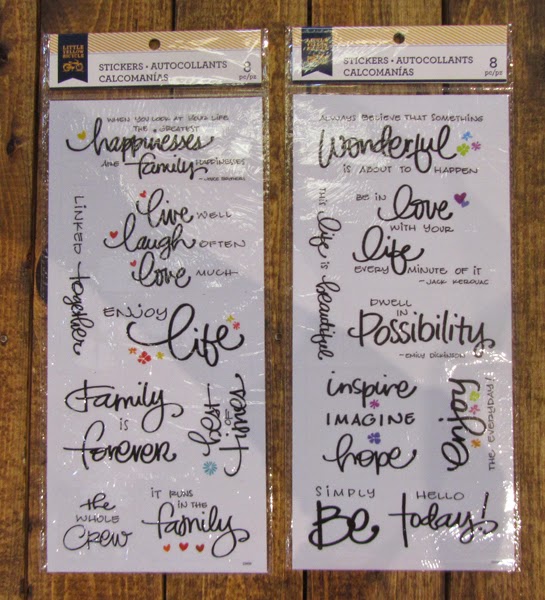 LITTLE
YELLOW
BICYCLE
STICKERS • AUTOCOLLANTS
CALCOMANÍAS
8
pc/pz
WHEN YOU LOOK AT YOUR LIFE
THE GREATEST
happinesses
ARE family HAPPINESSES
— JOYCE BROTHERS
LINKED together
live WELL
laugh OFTEN
love MUCH
ENJOY
life
Family
is
forever
best
OF
times
the
WHOLE
Crew
IT RUNS
IN THE
family
STICKERS • AUTOCOLLANTS
CALCOMANÍAS
8
pc/pz
ALWAYS BELIEVE THAT SOMETHING
wonderful
IS ABOUT TO HAPPEN
THIS life is beautiful
BE IN love
WITH YOUR
life
EVERY MINUTE OF IT
— JACK KEROUAC
DWELL
IN
Possibility
— EMILY DICKINSON
inspire
IMAGINE
hope
enjoy
THE
SIMPLY
Be
HELLO
today!